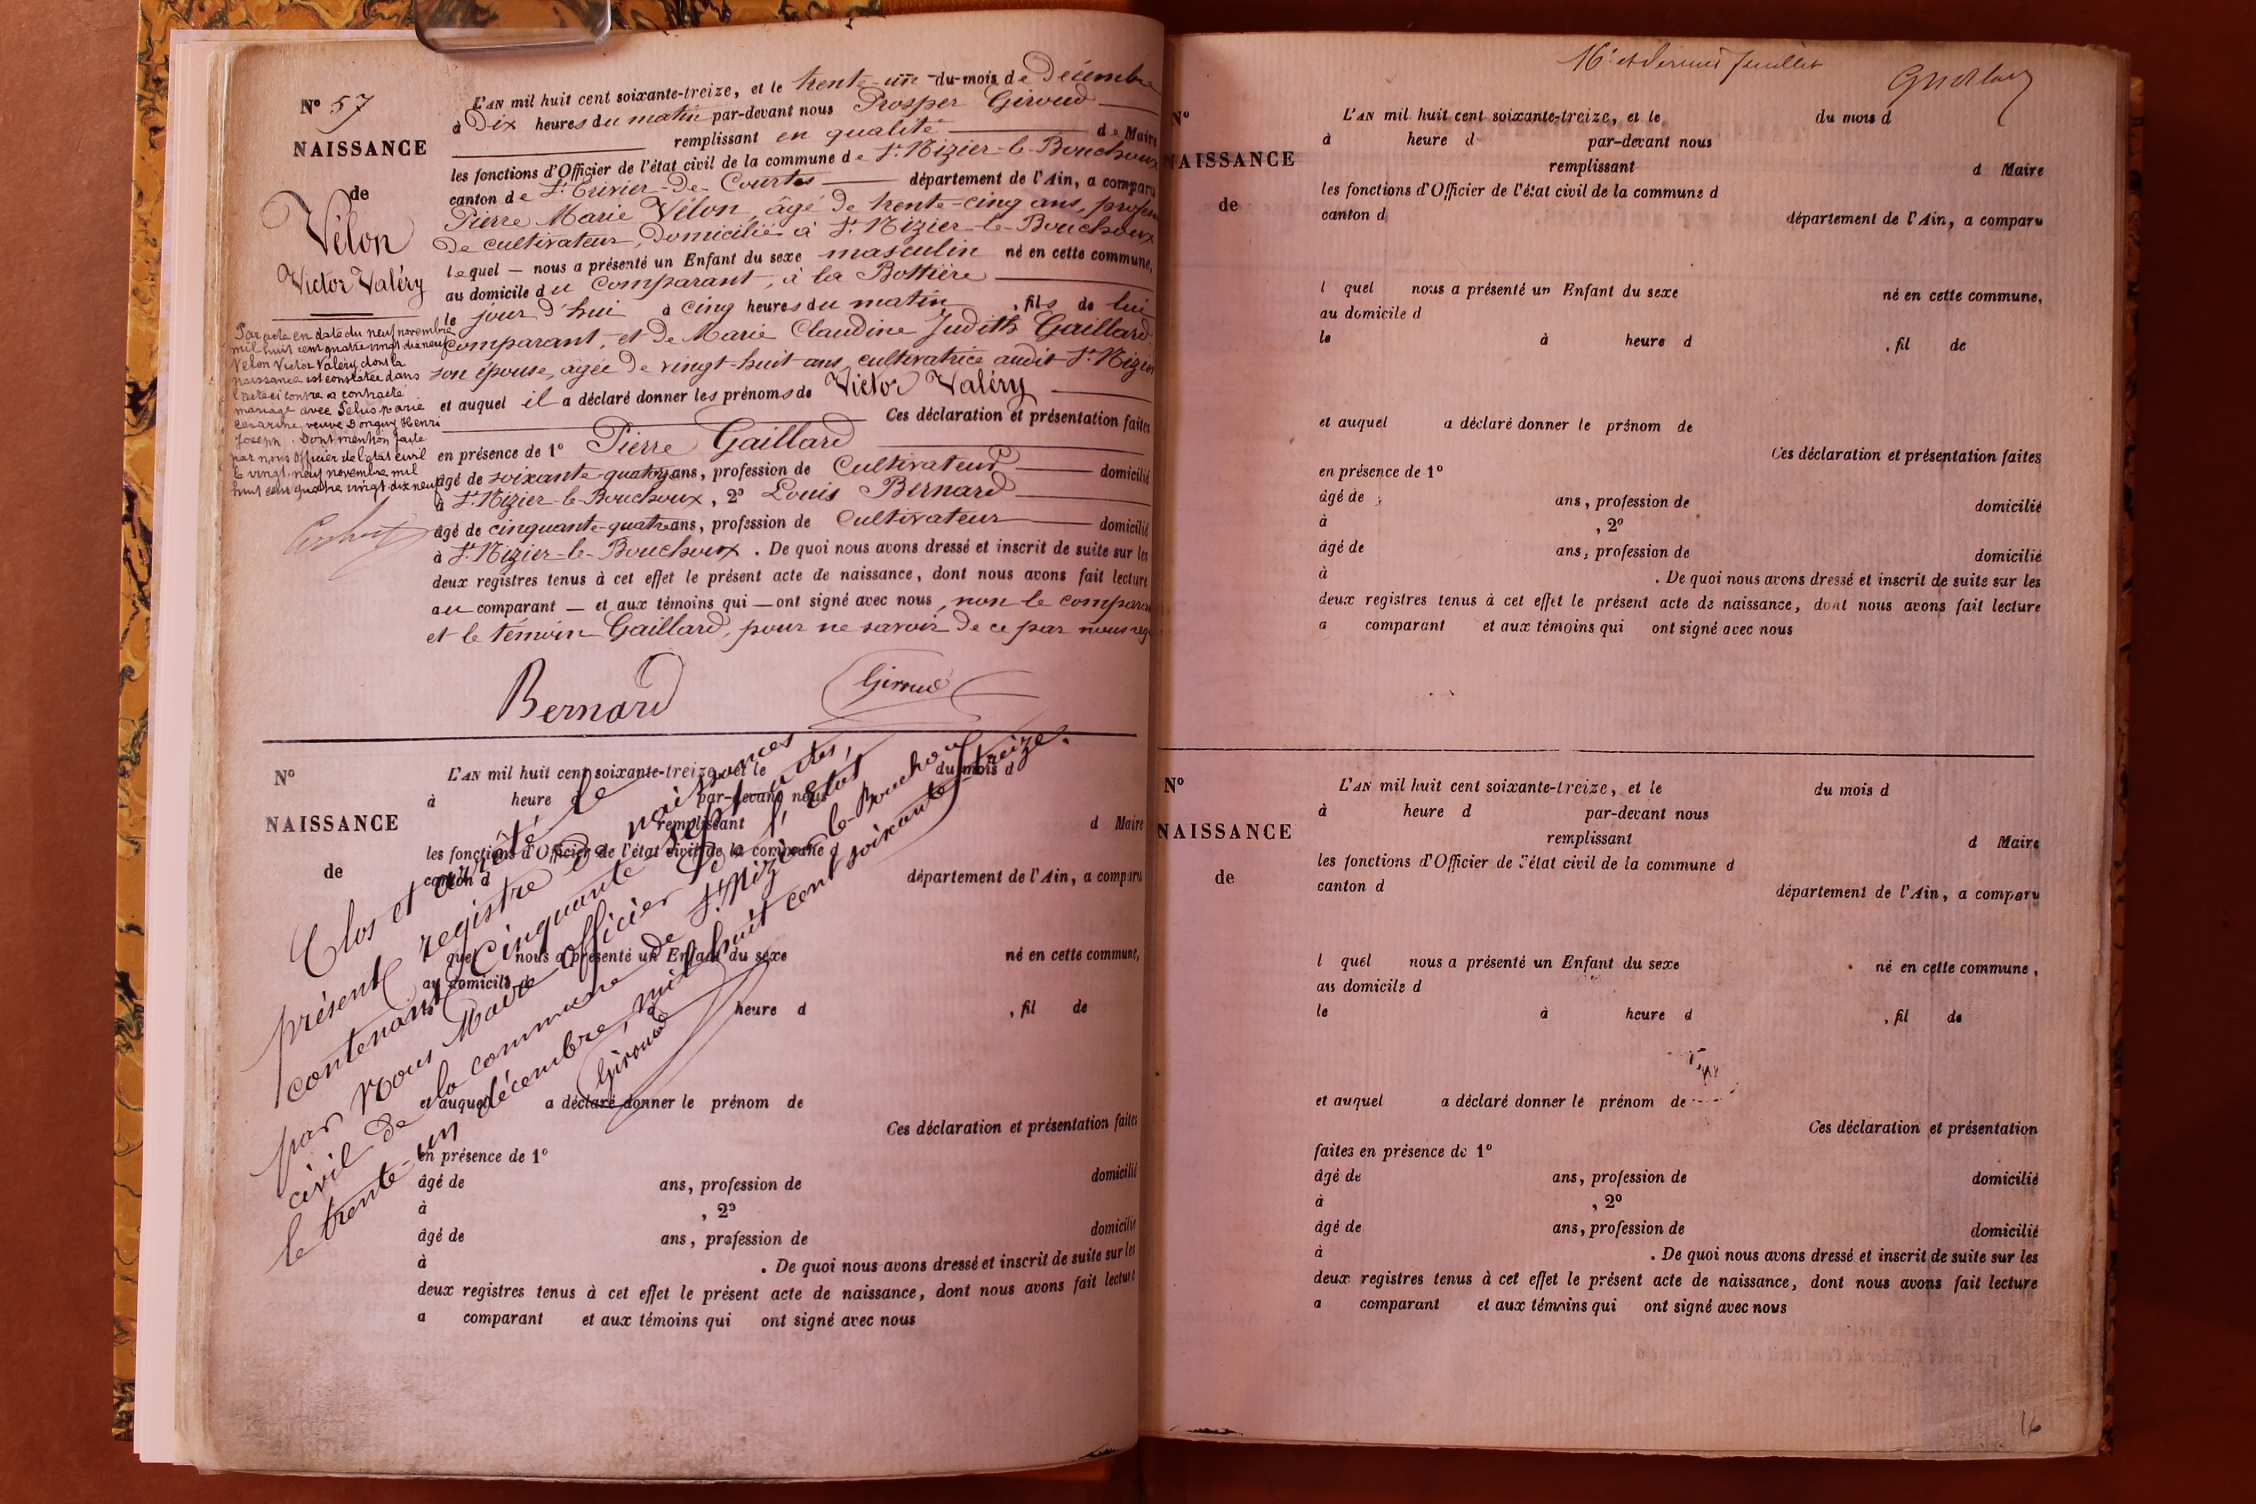 N° 57
NAISSANCE
de
Vélon
Victor Valéry
Par acte en date du neuf novembre
mil huit cent quatre vingt dix neuf
Vélon Victor Valéry dont la
naissance est constatée dans
l'acte ci contre a contracté
mariage avec Pelus Marie
Césarine, veuve Donguy Henri
Joseph. Dont mention faite
par nous Officier de l'état civil
le vingt-neuf novembre mil
huit cent quatre vingt dix neuf
L'AN mil huit cent soixante-treize, et le trente-un du mois de Décembre
à Dix heures du matin par-devant nous Prosper Giroud
remplissant en qualité de Maire
les fonctions d'Officier de l'état civil de la commune de St Nizier-le-Bouchoux
canton de St Trivier-de-Courtes département de l'Ain, a comparu
Pierre Marie Vélon, âgé de trente-cinq ans, profession
de cultivateur, domicilié à St Nizier-le-Bouchoux
lequel — nous a présenté un Enfant du sexe masculin né en cette commune,
au domicile du comparant, à la Bottière
le jour d'hui à cinq heures du matin, fils de lui
comparant, et de Marie Claudine Judith Gaillard
son épouse, âgée de vingt-huit ans, cultivatrice audit St Nizier
et auquel il a déclaré donner les prénoms de Victor Valéry
Ces déclaration et présentation faites
en présence de 1° Pierre Gaillard
âgé de soixante-quatre ans, profession de Cultivateur domicilié
à St Nizier-le-Bouchoux, 2° Louis Bernard
âgé de cinquante-quatre ans, profession de Cultivateur domicilié
à St Nizier-le-Bouchoux. De quoi nous avons dressé et inscrit de suite sur les
deux registres tenus à cet effet le présent acte de naissance, dont nous avons fait lecture
au comparant — et aux témoins qui — ont signé avec nous, non le comparant
et le témoin Gaillard, pour ne savoir de ce par nous req
Bernard
Giroud
N°
NAISSANCE
de
L'AN mil huit cent soixante-treize, et le du mois d
à heure d par-devant nous
remplissant d Maire
les fonctions d'Officier de l'état civil de la commune d
canton d département de l'Ain, a comparu
quel nous a présenté un Enfant du sexe né en cette commune,
au domicile de
à heure d , fil de
et auquel a déclaré donner le prénom de
Ces déclaration et présentation faites
en présence de 1°
âgé de ans, profession de domicilié
à , 2°
âgé de ans, profession de domicilié
à . De quoi nous avons dressé et inscrit de suite sur les
deux registres tenus à cet effet le présent acte de naissance, dont nous avons fait lecture
a comparant et aux témoins qui ont signé avec nous
Clos et arrêté le
présent registre de naissances
contenant cinquante-sept actes,
par Nous Maire officier de l'état
civil de la commune de St Nizier-le-Bouchoux
le trente-un décembre, mil huit cent soixante-treize.
Giroud
16e et dernier feuillet
N°
NAISSANCE
de
L'AN mil huit cent soixante-treize, et le du mois d
à heure d par-devant nous
remplissant d Maire
les fonctions d'Officier de l'état civil de la commune d
canton d département de l'Ain, a comparu
l quel nous a présenté un Enfant du sexe né en cette commune,
au domicile d
le à heure d , fil de
et auquel a déclaré donner le prénom de
Ces déclaration et présentation faites
en présence de 1°
âgé de ans, profession de domicilié
à , 2°
âgé de ans, profession de domicilié
à . De quoi nous avons dressé et inscrit de suite sur les
deux registres tenus à cet effet le présent acte de naissance, dont nous avons fait lecture
a comparant et aux témoins qui ont signé avec nous
N°
NAISSANCE
de
L'AN mil huit cent soixante-treize, et le du mois d
à heure d par-devant nous
remplissant d Maire
les fonctions d'Officier de l'état civil de la commune d
canton d département de l'Ain, a comparu
l quel nous a présenté un Enfant du sexe né en cette commune,
au domicile d
le à heure d , fil de
et auquel a déclaré donner le prénom de
Ces déclaration et présentation
faites en présence de 1°
âgé de ans, profession de domicilié
à , 2°
âgé de ans, profession de domicilié
à . De quoi nous avons dressé et inscrit de suite sur les
deux registres tenus à cet effet le présent acte de naissance, dont nous avons fait lecture
a comparant et aux témoins qui ont signé avec nous
16